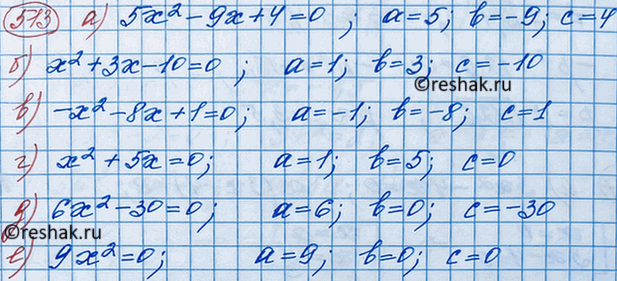 513 а) 5x² - 9x + 4 = 0 ; a = 5; b = -9; c = 4
б) x² + 3x - 10 = 0 ; a = 1; b = 3; c = -10
©reshak.ru
в) -x² - 8x + 1 = 0; a = -1; b = -8; c = 1
г) x² + 5x = 0; a = 1; b = 5; c = 0
д) 6x² - 30 = 0; a = 6; b = 0; c = -30
©reshak.ru
е) 9x² = 0; a = 9; b = 0; c = 0